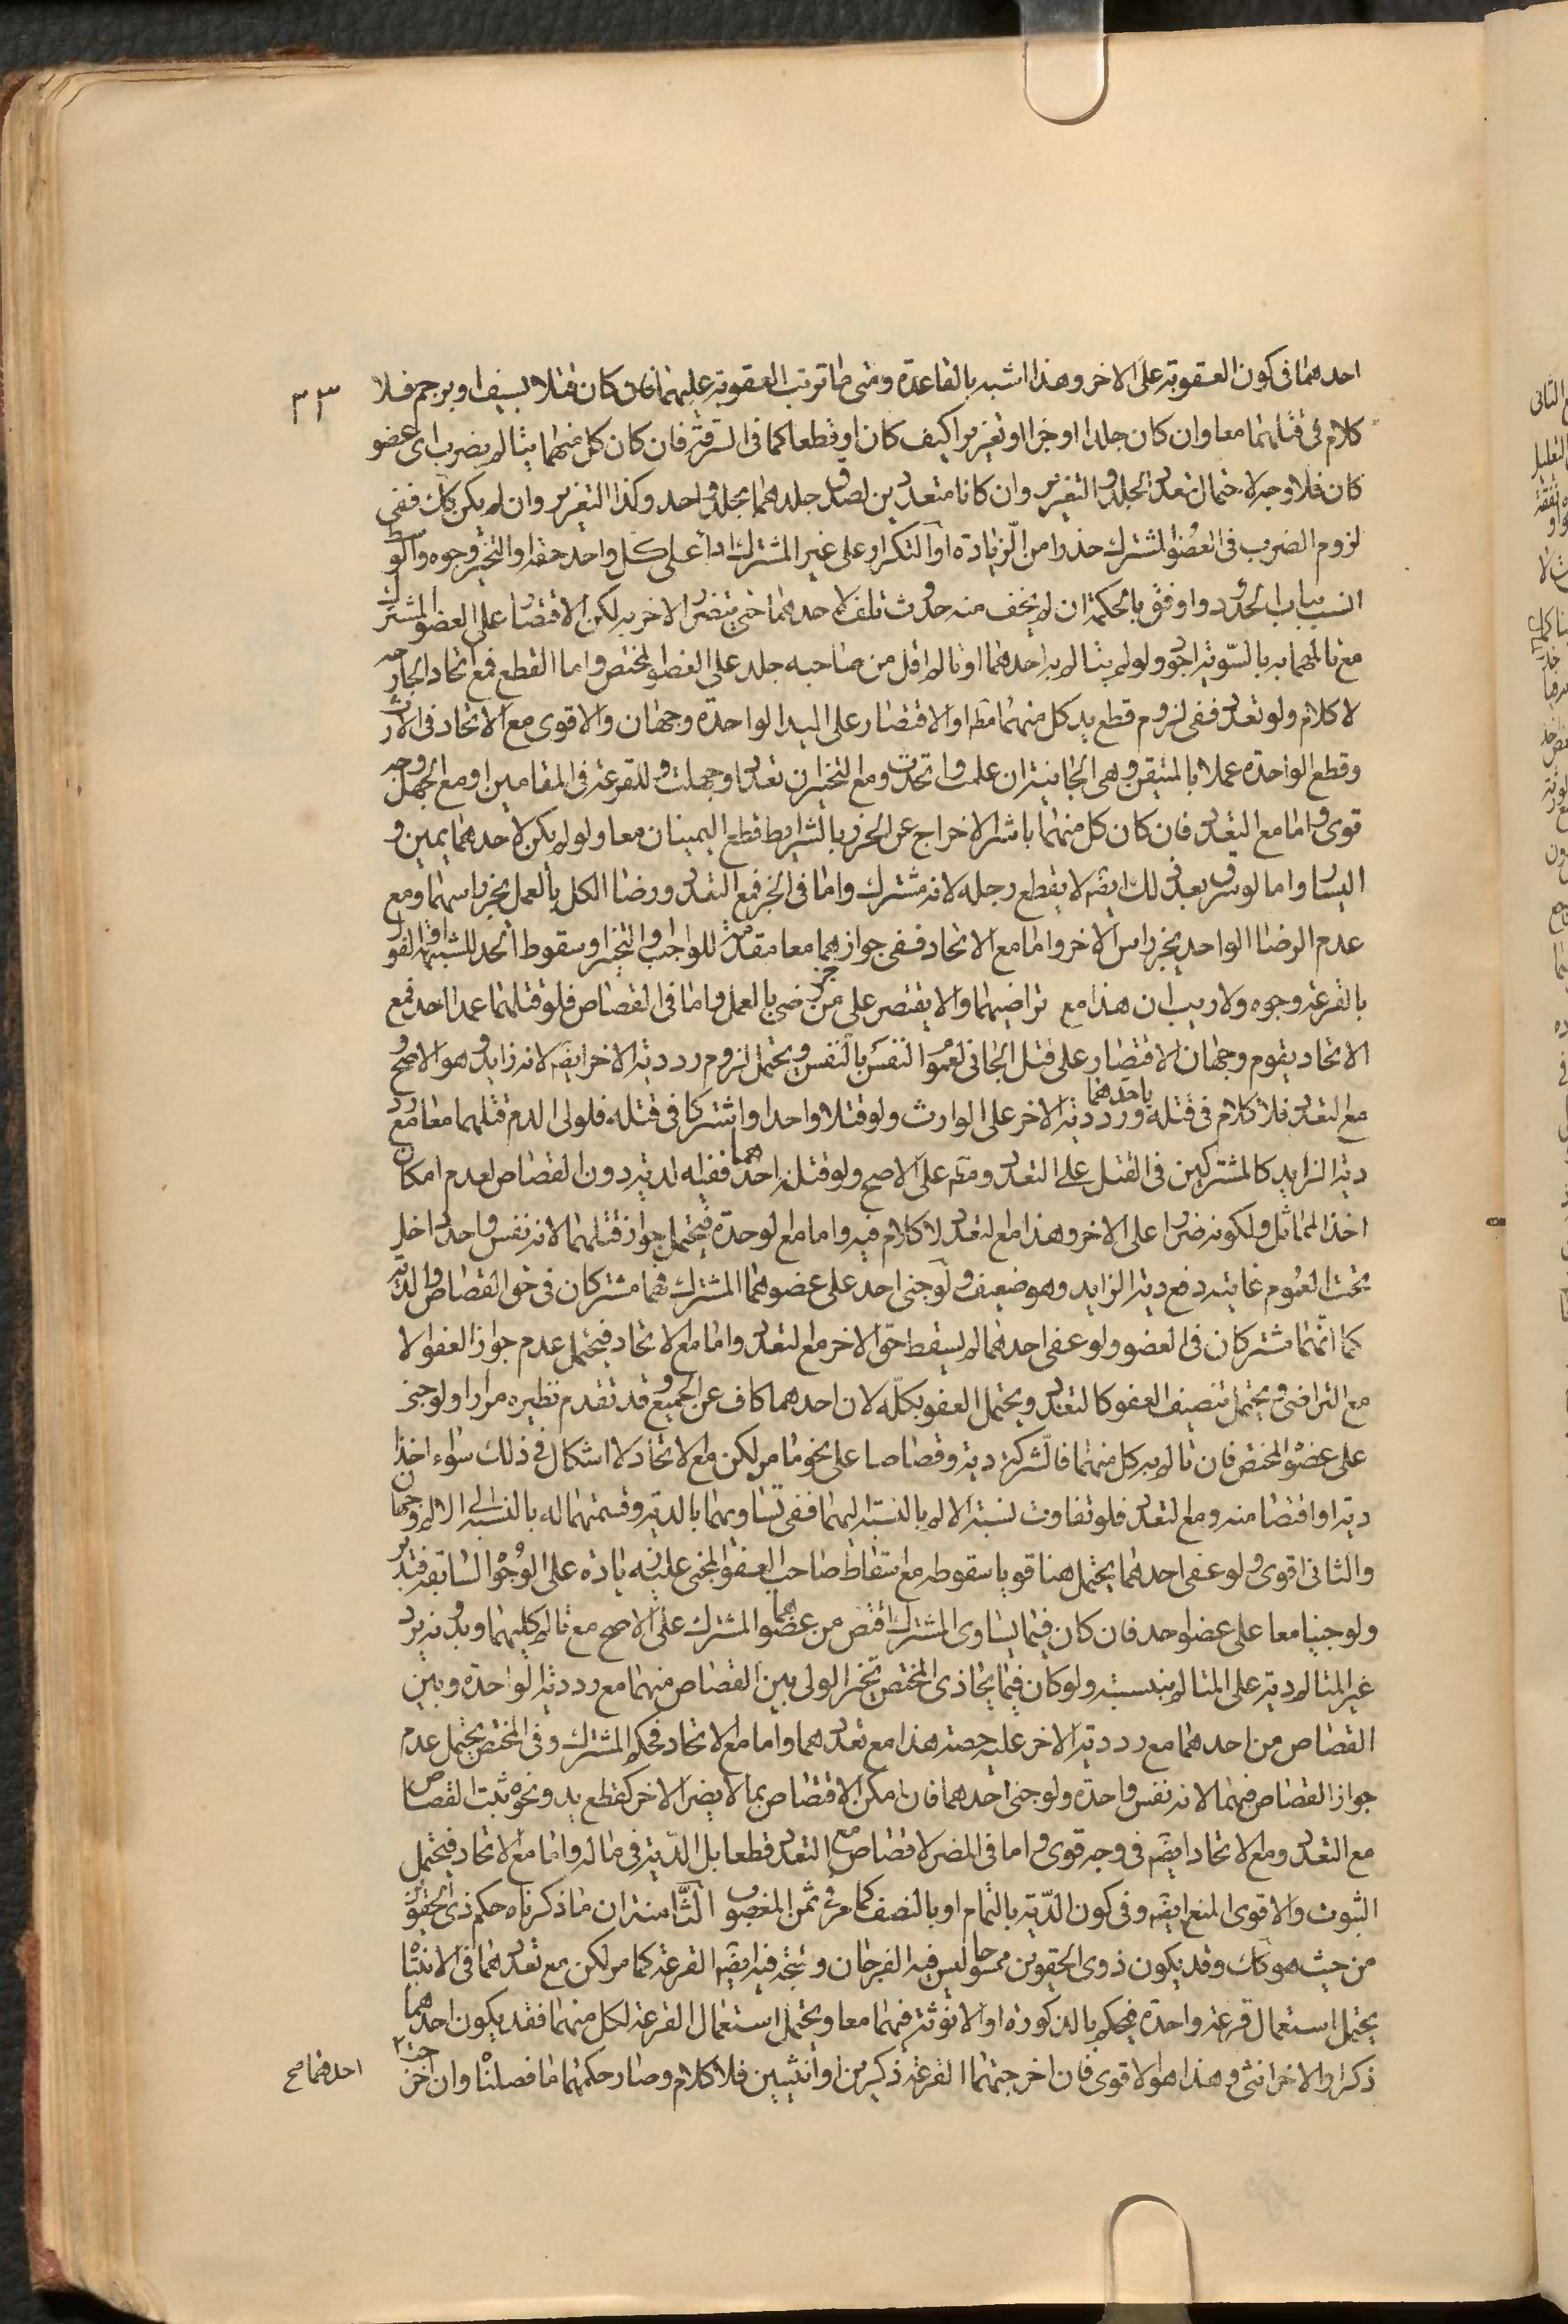 ٣٣
احدهما فى كون العقوبة على الاخر وهذا اشبه بالقاعدة ومتى ما ترتب العقوبة عليهما فان كان قتلا بسيف او برجم فلا
كلام فى قتلهما معا وان كان جلدا او جزا او تعزيرا كيف كان او قطعا كما فى السرقة فان كان كل منهما يتالم بضرب اى عضو
كان فلا وجه لاحتمال تعدد الجلد والتعزير وان كانا متعددين لصدق جلدهما بجلد واحد وكذا التعزير وان لم يكن كك ففى
لزوم الضرب فى العضو المشترك حذرا من الزيادة او التكرار على غير المشترك اداء على كل واحد حقه او التخيير وجوه والوسط
انسب بباب الحدود واوفق بالحكمة ان لم يخف منه حدوث تلف لاحدهما حتى يتضرر الاخر به لكن الاقتصار على العضو المشترك
مع تالمهما به بالسوية اجود ولو لم يتالم به احدهما او تالم اقل من صاحبه جلد على العضو المختص واما القطع فمع اتحاد الجارحة
لا كلام ولو تعدد ففى لزوم قطع يد كل منهما مط او الاقتصار على اليد الواحدة وجهان والاقوى مع الاتحاد فى الارث
وقطع الواحدة عملا بالمتيقن وهى الجانية ان علمت واتحدت ومع التخيير ان تعدد او جهلت وللقرعة فى المقامين او مع الجهل وجه
قوى واما مع التعدد فان كان كل منهما باشر الاخراج عن الحرز بالشرايط قطع اليمينان معا ولو لم يكن لاحدهما يمين و
اليسار واما لو سرق بعد ذلك ايضه لا يقطع رجله لانه مشترك واما فى الجز فمع التعدد ورضا الكل بالعمل يجز راسهما ومع
عدم الرضا الواحد يجز راس الاخر واما مع الاتحاد ففى جوازهما معا مقدمة للواجب والتخيير وسقوط الحد للشبهة او القول
بالقرعة وجوه ولا ريب ان هذا مع تراضيهما والا يقتصر على جز من رضى بالعمل واما فى القصاص فلو قتلهما عمدا احد فمع
الاتحاد يقوم وجهان الاقتصار على قتل الجانى لعموم النفس بالنفس ويحتمل لزوم رد دية الاخر ايضه لانه زايد وهو الاصح و
مع التعدد فلا كلام فى قتله باحدهما ورد دية الاخر على الوارث ولو قتلا واحدا واشتركا فى قتله فلولى الدم قتلهما معا مع رد
دية الزايد كالمشتركين فى القتل على التعدد ومط على الاصح ولو قتله احدهما ففيه الدية دون القصاص لعدم امكان
اخذ المماثل ولكونه ضررا على الاخر وهذا مع التعدد لا كلام فيه واما مع الوحدة فيحتمل جواز قتلهما لانه نفس واحد داخل
تحت العموم غايته دفع دية الزايد وهو ضعيف ولو جنى احد على عضوهما المشترك فهما مشتركان فى حق القصاص والدية
كما انهما مشتركان فى العضو ولو عفى احدهما لم يسقط حق الاخر مع التعدد واما مع الاتحاد فيحتمل عدم جواز العفو الا
مع التراضى ويحتمل تنصيف العفو كالتعدد ويحتمل العفو بكله لان احدهما كاف عن الجميع وقد تقدم نظيره مرارا ولو جنى
على عضو المختص فان تالم به كل منهما فالشركة دية وقصاصا على نحو ما مر لكن مع الاتحاد لا اشكال فى ذلك سواء اخذا
دية او اقتصا منه ومع التعدد فلو تفاوت نسبة الالم بالنسبة اليهما ففى تساويهما بالدية وقسمتهما له بالنسبة الى الالم وجهان
والثانى اقوى ولو عفى احدهما يحتمل هنا قويا سقوطه مع اسقاط صاحب العضو المجنى عليه زيادة على الوجوه السابقة فتدبر
ولو جنيا معا على عضو احد فان كان فيما يساوى المشترك اقتص من عضوهما المشترك على الاصح مع تالم كليهما وبدونه يرد
غير المتالم دية على المتالم بنسبته ولو كان فيما يحاذى المختص تخير الولى بين القصاص منهما مع رد دية الواحدة وبين
القصاص من احدهما مع رد دية الاخر عليه حصته هذا مع تعددهما واما مع الاتحاد فحكم المشترك وفى المختص يحتمل عدم
جواز القصاص فيهما لانه نفس واحدة ولو جنى احدهما فان امكن الاقتصاص بما لا يضر الاخر كقطع يد ونحوه ثبت القصاص
مع التعدد ومع الاتحاد ايضه فى وجه قوى واما فى المضر لا قصاص مع التعدد قطعا بل الدية فى ماله واما مع الاتحاد فيحتمل
الثبوت والاقوى المنع ايضه وفى كون الدية بالتمام او بالنصف كما مر فى ثمن المغصوب الثامنة ان ما ذكرناه حكم ذى الحقوين
من حيث هو كك وقد يكون ذوى الحقوين ممسوحا ليس فيه الفرجان ويتجه فيه ايضه القرعة كما مر لكن مع تعددهما فى الانتباه
يحتمل استعمال قرعة واحدة فيحكم بالذكورة او الانوثة فيهما معا ويحتمل استعمال القرعة لكل منهما فقد يكون احدهما
ذكرا والاخر انثى وهذا هو الاقوى فان اخرجتهما القرعة ذكرين او انثيين فلا كلام وصار حكمهما ما فصلناه وان اخرجت
احدهما صح